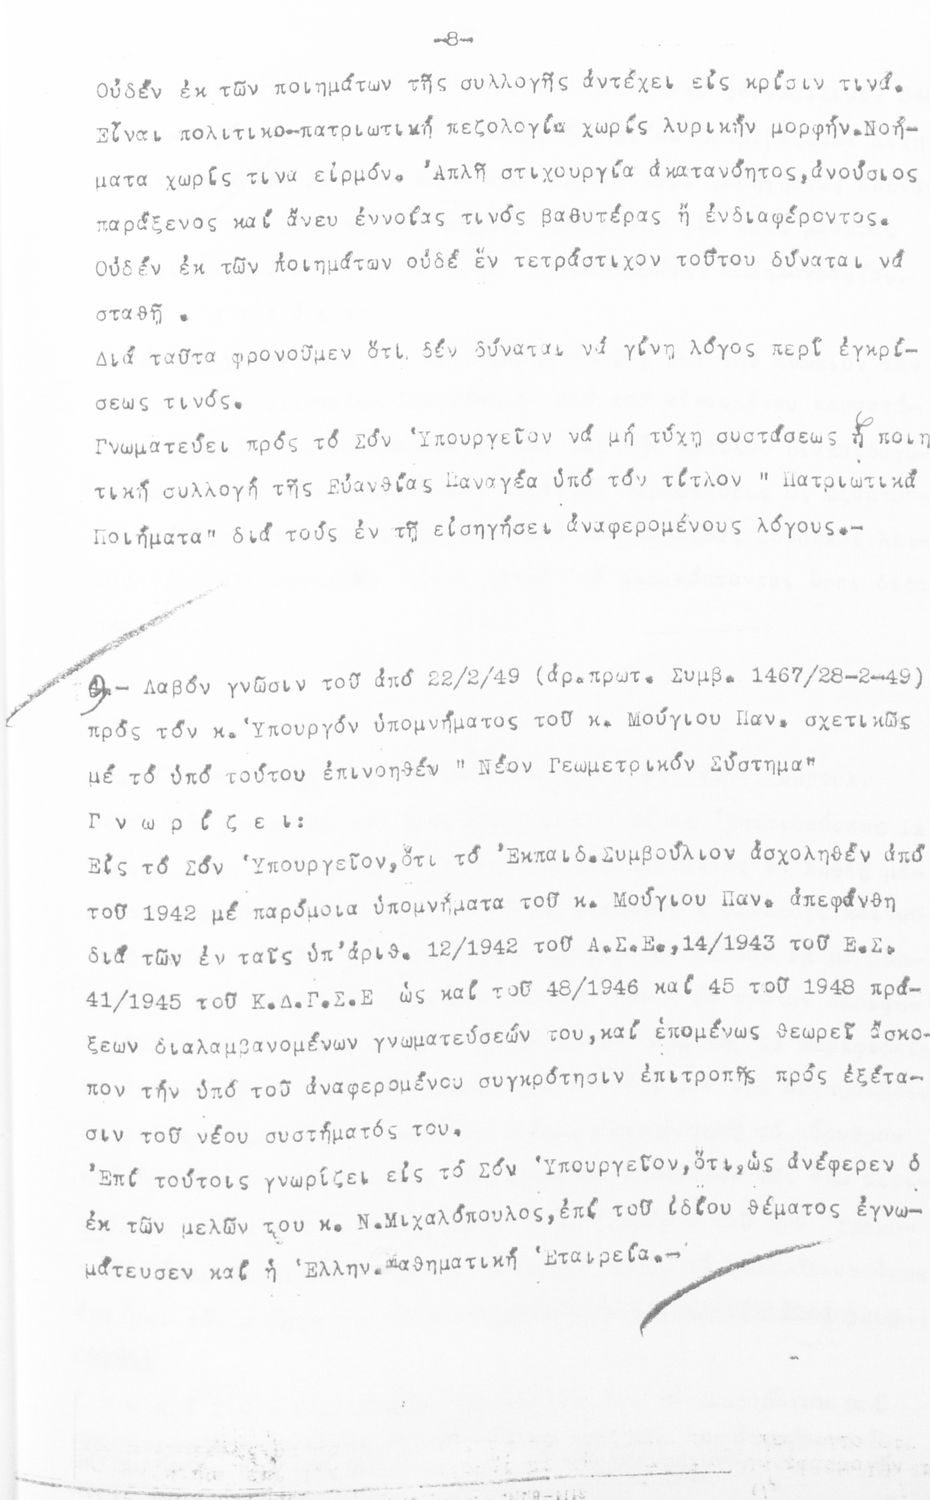 -8-
Οὐδέν ἐκ τῶν ποιημάτων τῆς συλλογῆς ἀντέχει εἰς κρίσιν τινά.
Εἶναι πολιτικο-πατριωτική πεζολογία χωρίς λυρικήν μορφήν.Νοή-
ματα χωρίς τινα εἱρμόν. Ἁπλῆ στιχουργία ἀκατανόητος,ἀνούσιος
παράξενος καί ἄνευ ἐννοίας τινός βαθυτέρας ἤ ἐνδιαφέροντος.
Οὐδέν ἐκ τῶν ποιημάτων οὐδέ ἕν τετράστιχον τούτου δύναται νά
σταθῇ .
Διά ταῦτα φρονοῦμεν ὅτι δέν δύναται νά γίνῃ λόγος περί ἐγκρί-
σεως τινός.
Γνωματεύει πρός τό Σόν Ὑπουργεῖον νά μή τύχῃ συστάσεως ἡ ποιη
τική συλλογή τῆς Εὐανθίας Παναγέα ὑπό τόν τίτλον " Πατριωτικά
Ποιήματα" διά τούς ἐν τῇ εἰσηγήσει ἀναφερομένους λόγους.-
9.- Λαβόν γνῶσιν τοῦ ἀπό 22/2/49 (ἀρ.πρωτ. Συμβ. 1467/28-2-49)
πρός τόν κ.Ὑπουργόν ὑπομνήματος τοῦ κ. Μούγιου Παν. σχετικῶς
μέ τό ὑπό τούτου ἐπινοηθέν " Νέον Γεωμετρικόν Σύστημα"
Γ ν ω ρ ί ζ ε ι:
Εἰς τό Σόν Ὑπουργεῖον,ὅτι τό Ἐκπαιδ.Συμβούλιον ἀσχοληθέν ἀπό
τοῦ 1942 μέ παρόμοια ὑπομνήματα τοῦ κ. Μούγιου Παν. ἀπεφάνθη
διά τῶν ἐν ταῖς ὑπ'ἀριθ. 12/1942 τοῦ Α.Σ.Ε.,14/1943 τοῦ Ε.Σ.
41/1945 τοῦ Κ.Δ.Γ.Σ.Ε ὡς καί τοῦ 48/1946 καί 45 τοῦ 1948 πρά-
ξεων διαλαμβανομένων γνωματεύσεών του,καί ἑπομένως θεωρεῖ ἄσκο-
πον τήν ὑπό τοῦ ἀναφερομένου συγκρότησιν ἐπιτροπῆς πρός ἐξέτα-
σιν τοῦ νέου συστήματός του.
Ἐπί τούτοις γνωρίζει εἰς τό Σόν Ὑπουργεῖον,ὅτι,ὡς ἀνέφερεν ὁ
ἐκ τῶν μελῶν του κ. Ν.Μιχαλόπουλος,ἐπί τοῦ ἰδίου θέματος ἐγνω-
μάτευσεν καί ἡ Ἑλλην.Μαθηματική Ἑταιρεία.-